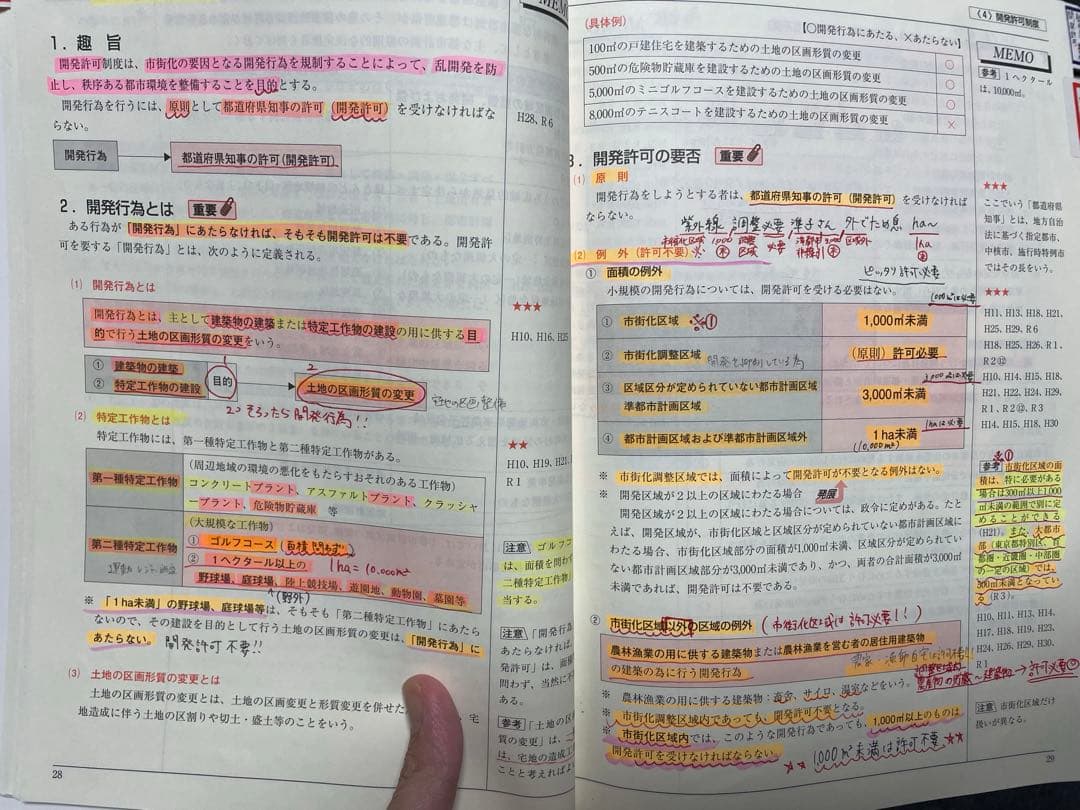 MEMO
1．趣 旨
開発許可制度は、市街化の要因となる開発行為を規制することによって、乱開発を防
止し、秩序ある都市環境を整備することを目的とする。
開発行為を行うには、原則として都道府県知事の許可（開発許可）を受けなければな
らない。
H28、R6
開発行為
都道府県知事の許可(開発許可)
2．開発行為とは 重要
ある行為が「開発行為」にあたらなければ、そもそも開発許可は不要である。開発許
可を要する「開発行為」とは、次のように定義される。
(1) 開発行為とは
★★★
開発行為とは、主として建築物の建築または特定工作物の建設の用に供する目
的で行う土地の区画形質の変更をいう。
H10、H16、H25
① 建築物の建築
② 特定工作物の建設
1
目的
2
土地の区画形質の変更
2つそろったら開発行為!!
(2) 特定工作物とは
特定工作物には、第一種特定工作物と第二種特定工作物がある。
★★
H10、H19、H21、
R1
第一種特定工作物
(周辺地域の環境の悪化をもたらすおそれのある工作物)
コンクリートプラント、アスファルトプラント、クラッシャ
ープラント、危険物貯蔵庫 等
第二種特定工作物
(大規模な工作物)
① ゴルフコース(面積問わず)
② 1ヘクタール以上の 1ha=10,000m²
野球場、庭球場、陸上競技場、遊園地、動物園、墓園等
(野外)
注意 ゴルフコ
は、面積を問わ
二種特定工作物
当する。
※ 「1ha未満」の野球場、庭球場等は、そもそも「第二種特定工作物」にあたら
ないので、その建設を目的として行う土地の区画形質の変更は、「開発行為」に
あたらない。 開発許可不要!!
注意 「開発行為
あたらなければ
発許可」は、面積
問わず、当然に不
ある。
(3) 土地の区画形質の変更とは
土地の区画形質の変更とは、土地の区画変更と形質変更を併せた
、宅
地造成に伴う土地の区割りや切土・盛土等のことをいう。
参考 「土地の区
質の変更」は、
は、宅地の造成工
ことと考えればよ
28
〈4〉開発許可制度
(具体例)
【○開発行為にあたる、×あたらない】
100㎡の戸建住宅を建築するための土地の区画形質の変更 ○
500㎡の危険物貯蔵庫を建設するための土地の区画形質の変更 ○
5,000㎡のミニゴルフコースを建設するための土地の区画形質の変更 ○
8,000㎡のテニスコートを建設するための土地の区画形質の変更 ×
MEMO
参考 1ヘクタール
は、10,000㎡。
3．開発許可の要否 重要
(1) 原 則
開発行為をしようとする者は、都道府県知事の許可（開発許可）を受けなければ
ならない。
★★★
ここでいう「都道府県
知事」とは、地方自治
法に基づく指定都市、
中核市、施行時特例市
ではその長をいう。
紫外線 調整必要 準子さん 外でため息 ha〜
(2) 例 外(許可不要)
ピッタリ許可必要
① 面積の例外
小規模の開発行為については、開発許可を受ける必要はない。
★★★
H11、H13、H18、H21、
H25、H29、R6
H18、H25、H26、R1、
R2⑫
H10、H14、H15、H18、
H21、H22、H24、H29、
R1、R2⑫、R3
H14、H15、H18、H30
① 市街化区域 ※① 1,000㎡未満
② 市街化調整区域 (原則) 許可必要
③ 区域区分が定められていない都市計画区域
準都市計画区域
3,000㎡未満
④ 都市計画区域および準都市計画区域外 1ha未満
(10,000m²)
1haは必要
※ 市街化調整区域では、面積によって開発許可が不要となる例外はない。
※ 開発区域が2以上の区域にわたる場合 発展
開発区域が2以上の区域にわたる場合については、政令に定めがある。たと
えば、開発区域が、市街化区域と区域区分が定められていない都市計画区域に
わたる場合、市街化区域部分の面積が1,000㎡未満、区域区分が定められていな
い都市計画区域部分が3,000㎡未満であり、かつ、両者の合計面積が3,000㎡
未満であれば、開発許可は不要である。
※①
参考 市街化区域の面
積は、特に必要がある
場合は300㎡以上1,000
㎡未満の範囲で別に定
めることができる
(H21)。また、大都市
部(東京都特別区、首
都圏・近畿圏・中部圏
の一定の区域)では、
500㎡未満となってい
る(R3)。
② 市街化区域以外の区域の例外 (市街化区域は許可必要!!)
農林漁業の用に供する建築物または農林漁業を営む者の居住用建築物
の建築の為に行う開発行為
H10、H11、H13、H14、
H17、H18、H19、H23、
H24、H26、H29、H30、
R1
※ 農林漁業の用に供する建築物：畜舎、サイロ、温室などをいう。
※ 市街化調整区域内であっても、開発許可不要となる。
※ 市街化区域内では、このような開発行為であっても、1,000㎡以上のものは
開発許可を受けなければならない。 1,000㎡未満は許可不要
注意 市街化区域だけ
扱いが異なる。
29